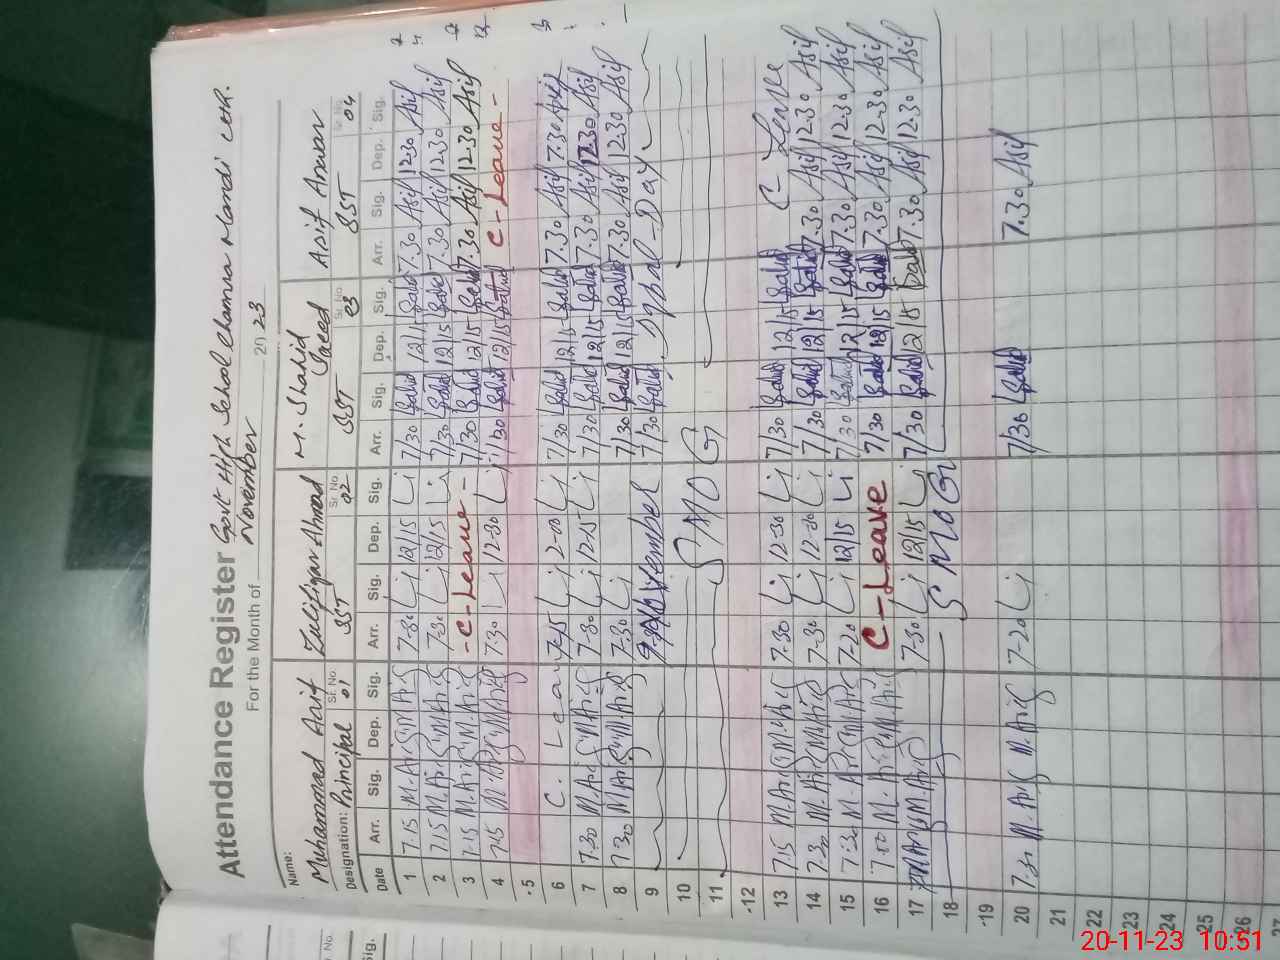 Attendance Register Govt High School Channa Mandi
For the Month of November 2023
Name: Muhammad Asif Zulifiqar Ahmad M. Shahid Saeed Asif Anwar
Designation: Principal Sr. No. 01 SST Sr. No. 02 SST Sr. No. 03 SST Sr. No. 04
Date Arr. Sig. Dep. Sig. Arr. Sig. Dep. Sig. Arr. Sig. Dep. Sig. Arr. Sig. Dep. Sig.
1 7.15 M.Asif M.Asif 7-30 12/15 7/30 Saeed 12/15 Saeed 7.30 Asif 12.30 Asif
2 7.15 M.Asif M.Asif 7-30 12/15 7/30 Saeed 12/15 Saeed 7.30 Asif 12.30 Asif
3 7.15 M.Asif M.Asif - C-Leave - 7/30 Saeed 12/15 Saeed 7.30 Asif 12.30 Asif
4 7.15 M.Asif M.Asif 7.30 12-30 7/30 Saeed 12/15 Saeed C-Leave -
5
6 C. Leave 7-15 2-00 7/30 Saeed 12/15 Saeed 7.30 Asif 7.30 Asif
7 7.30 M.Asif M.Asif 7-30 12-15 7/30 Saeed 12/15 Saeed 7.30 Asif 12.30 Asif
8 7.30 M.Asif M.Asif 7.30 7/30 Saeed 12/15 Saeed 7.30 Asif 12.30 Asif
9 9-November 7/30 Saeed Iqbal-Day
10
11 SMOG
12
13 7.15 M.Asif M.Asif 7.30 12-30 7/30 Saeed 12/15 Saeed C-Leave
14 7.30 M.Asif M.Asif 7-30 12-30 7/30 Saeed 12/15 Saeed 7.30 Asif 12.30 Asif
15 7.30 M.Asif M.Asif 7-20 12/15 7/30 Saeed 12/15 Saeed 7.30 Asif 12.30 Asif
16 7.00 M.Asif M.Asif C-Leave 7/30 Saeed 12/15 Saeed 7.30 Asif 12.30 Asif
17 M.Asif 7-30 12/15 7/30 Saeed 12/15 Saeed 7.30 Asif 12.30 Asif
18 SMOG
19
20 7.30 M.Asif M.Asif 7-20 7/30 Saeed 7.30 Asif
21
22
23
24
25
26
27
Sr. No.
Sig.
20-11-23 10:51